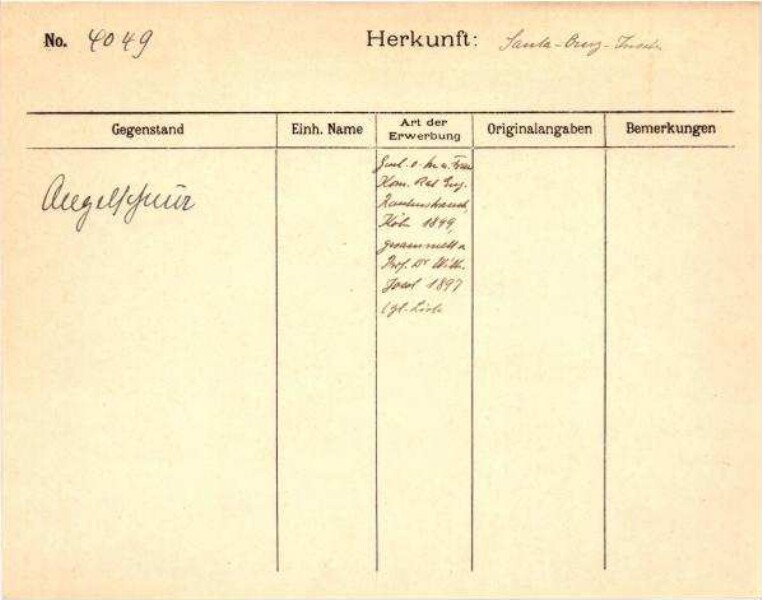 No. 4049 Herkunft: Santa-Cruz-Inseln
Gegenstand Einh. Name Art der Erwerbung Originalangaben Bemerkungen
Angelschnur
Gesch. v. u. Frau
Kom. Rat Eug.
Rautenstrauch,
Köln 1899,
gesammelt v.
Prof. Dr Wilh.
Joest 1897
lgl. Liste